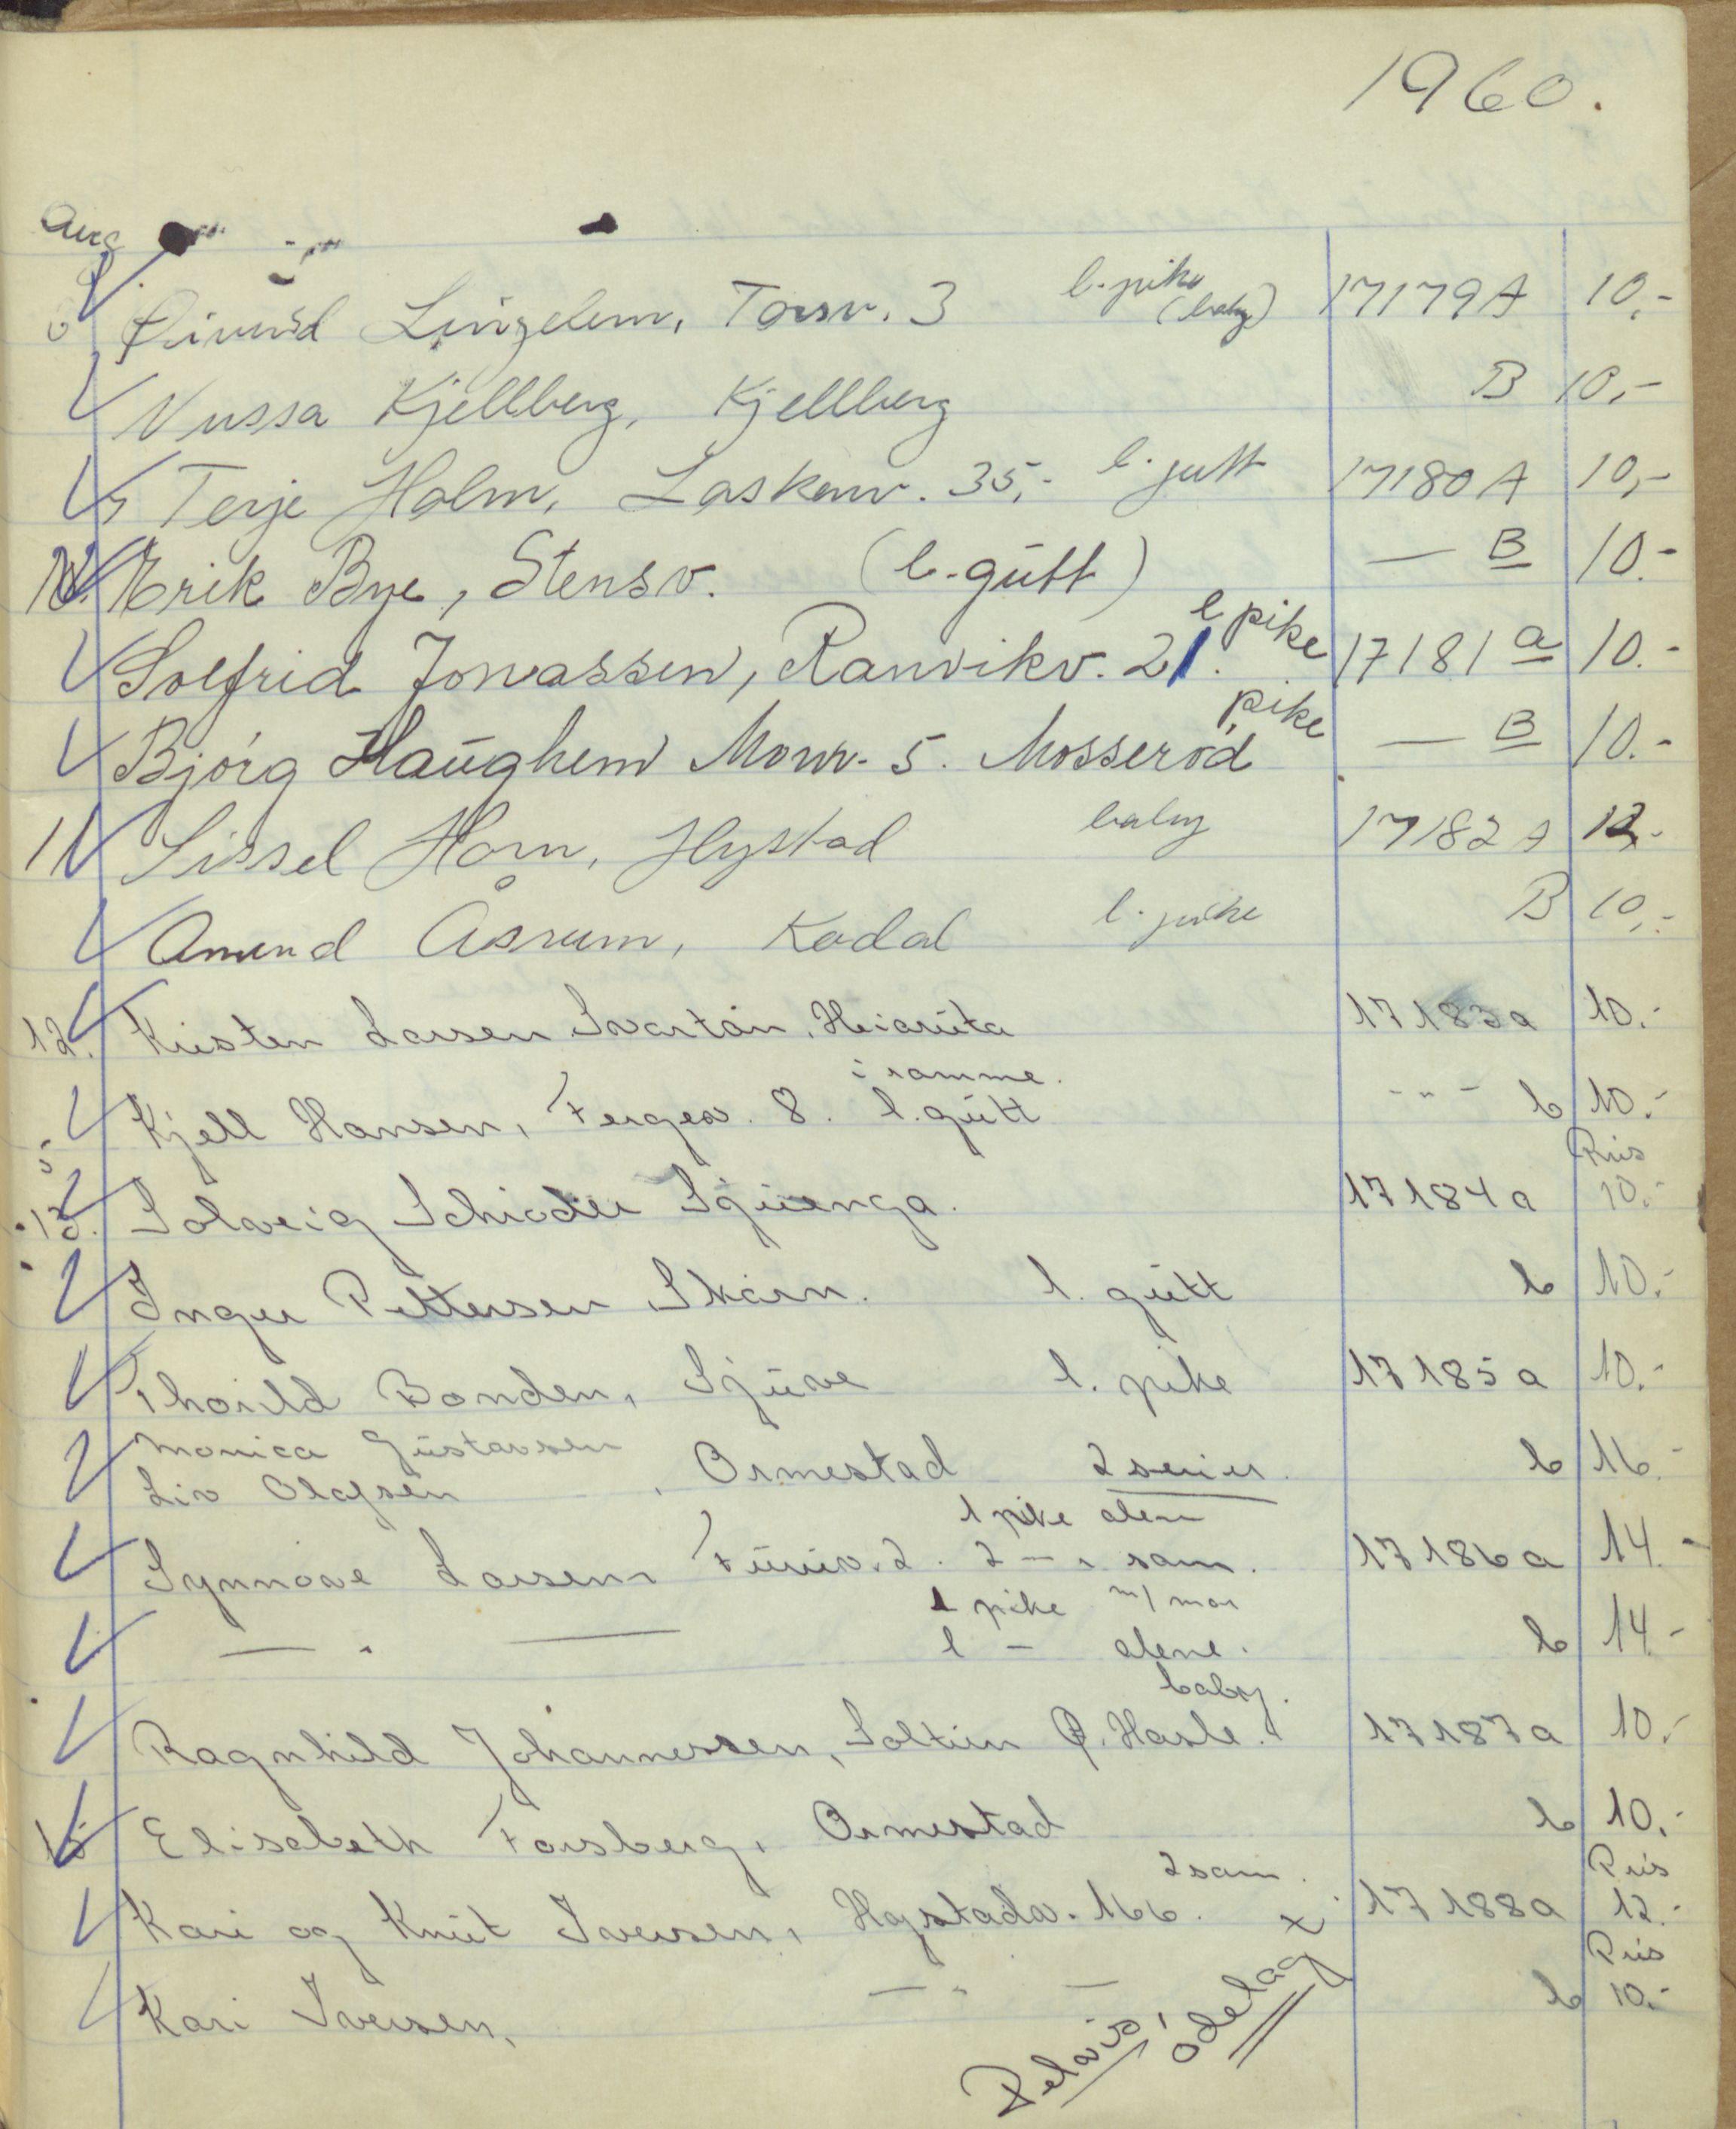 1960.
Aug
Øivind Lingelem, Torsv. 3 l. pike (baby) 17179 A 10,-
Nussa Kjellberg, Kjellberg B 10,-
Terje Holm, Laskenv. 35,- l. gutt 17180 A 10,-
10. Erik Bye, Stensv. (l. gutt) — B 10.-
l pike
Solfrid Jonassen, Ranvikv. 21. 17181 a 10.-
pike
Bjørg Haughem Monv. 5. Mosserød — B 10.-
11 Sissel Horn, Hystad baby 17182 A 12,-
Amund Åsrum, Kodal l. pike B 10,-
12. Kirsten Larsen Svartån, 17183a 10.-
i ramme.
Kjell Hansen, Fergev. 8. l. gutt - " - b 10.-
Pris
13. Solveig Schrøder Sjuenga. 17184a 10.-
Inger Pettersen Skårn. l. gutt b 10.-
Thorild Bonden, Sjuve l. pike 17185a 10.-
Monica Gustavsen
Liv Olafsen , Ormestad 2 serier. b 16.-
1 pike alene
Synnøve Larsen Furuv. 2. 2 — " sam. 17186a 14.-
1 pike m/ mor
— " — 1 — alene. b 14.-
baby.
Ragnhild Johannessen, Soltun Ø. Hasle. 17187a 10.-
15 Elisabeth Forsberg, Ormestad b 10.-
2 sam. Pris
Kari og Knut Iversen, Hystadv. 166. x 17188a 12.-
Pris
Kari Iversen, — " — b 10.-
ødelag